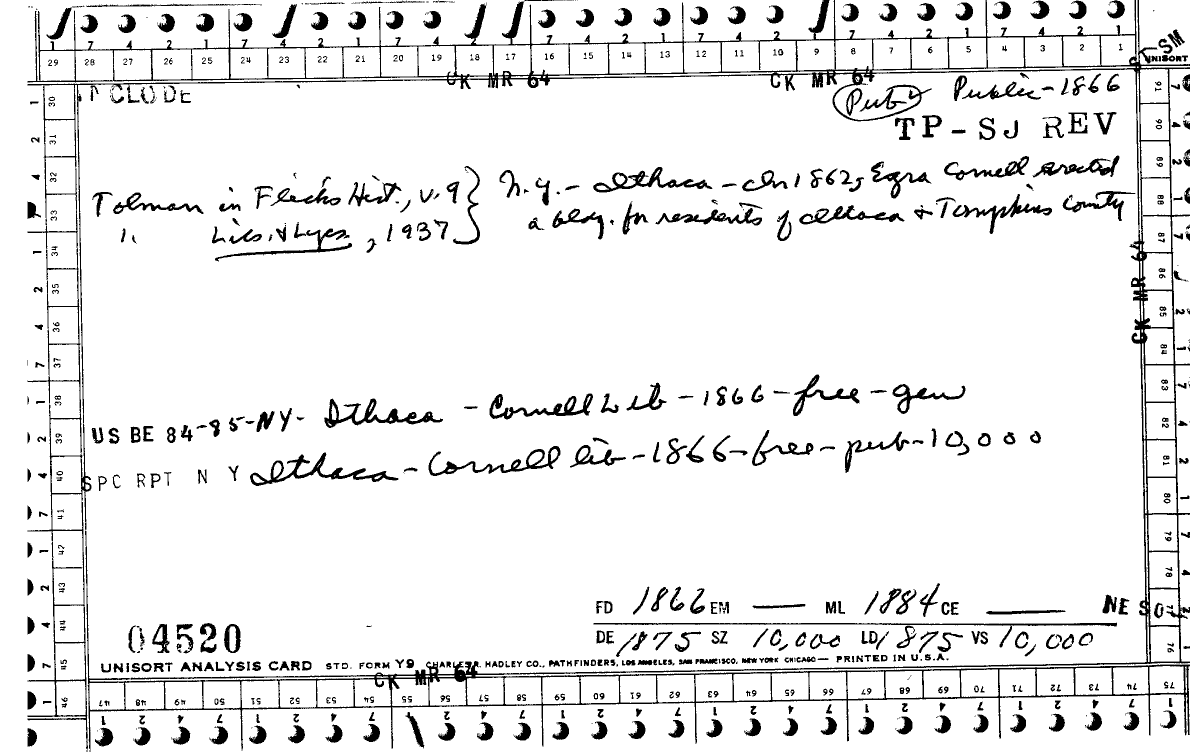 29 28 27 26 25 24 23 22 21 20 19 18 17 16 15 14 13 12 11 10 9 8 7 6 5 4 3 2 1
TSM
UNISORT
CK MR 64 CK MR 64
CLODE
Pub Public-1866
TP-SJ REV
Tolman in Flicks Hist., v.9 } N.Y. - Ithaca - In 1862, Ezra Cornell erected
" Libs. & Lyces., 1937 } a bldg. for residents of Ithaca & Tompkins County
CK MR 64
US BE 84-85-NY- Ithaca - Cornell Lib - 1866-free-gen
SPC RPT N Y Ithaca-Cornell lib-1866-free-pub-10,000
FD 1866 EM — ML 1884 CE — NE SO
04520 DE 1875 SZ 10,000 LD 1875 VS 10,000
UNISORT ANALYSIS CARD STD. FORM Y9 CHARLES R. HADLEY CO., PATHFINDERS, LOS ANGELES, SAN FRANCISCO, NEW YORK CHICAGO — PRINTED IN U.S.A.
CK MR 64
47 48 49 50 51 52 53 54 55 56 57 58 59 60 61 62 63 64 65 66 67 68 69 70 71 72 73 74 75